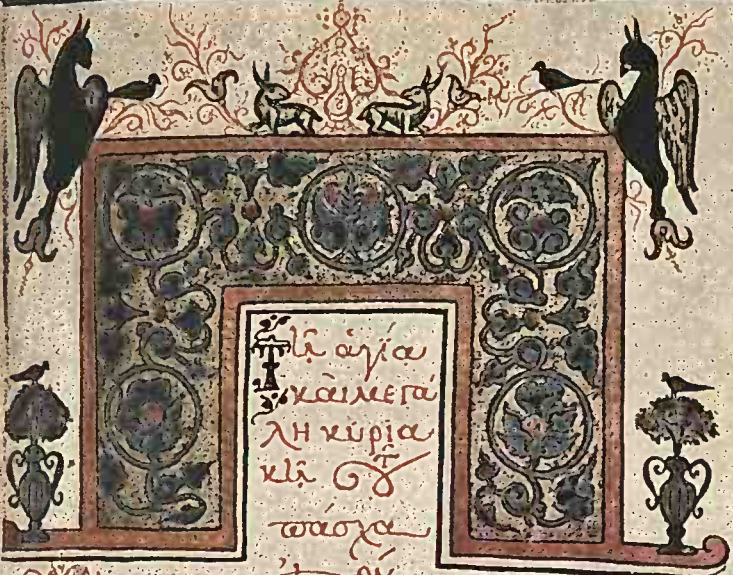 Τῆ ἁγία
καὶ μεγά
λη κυρια
κῆ τ
πάσχα